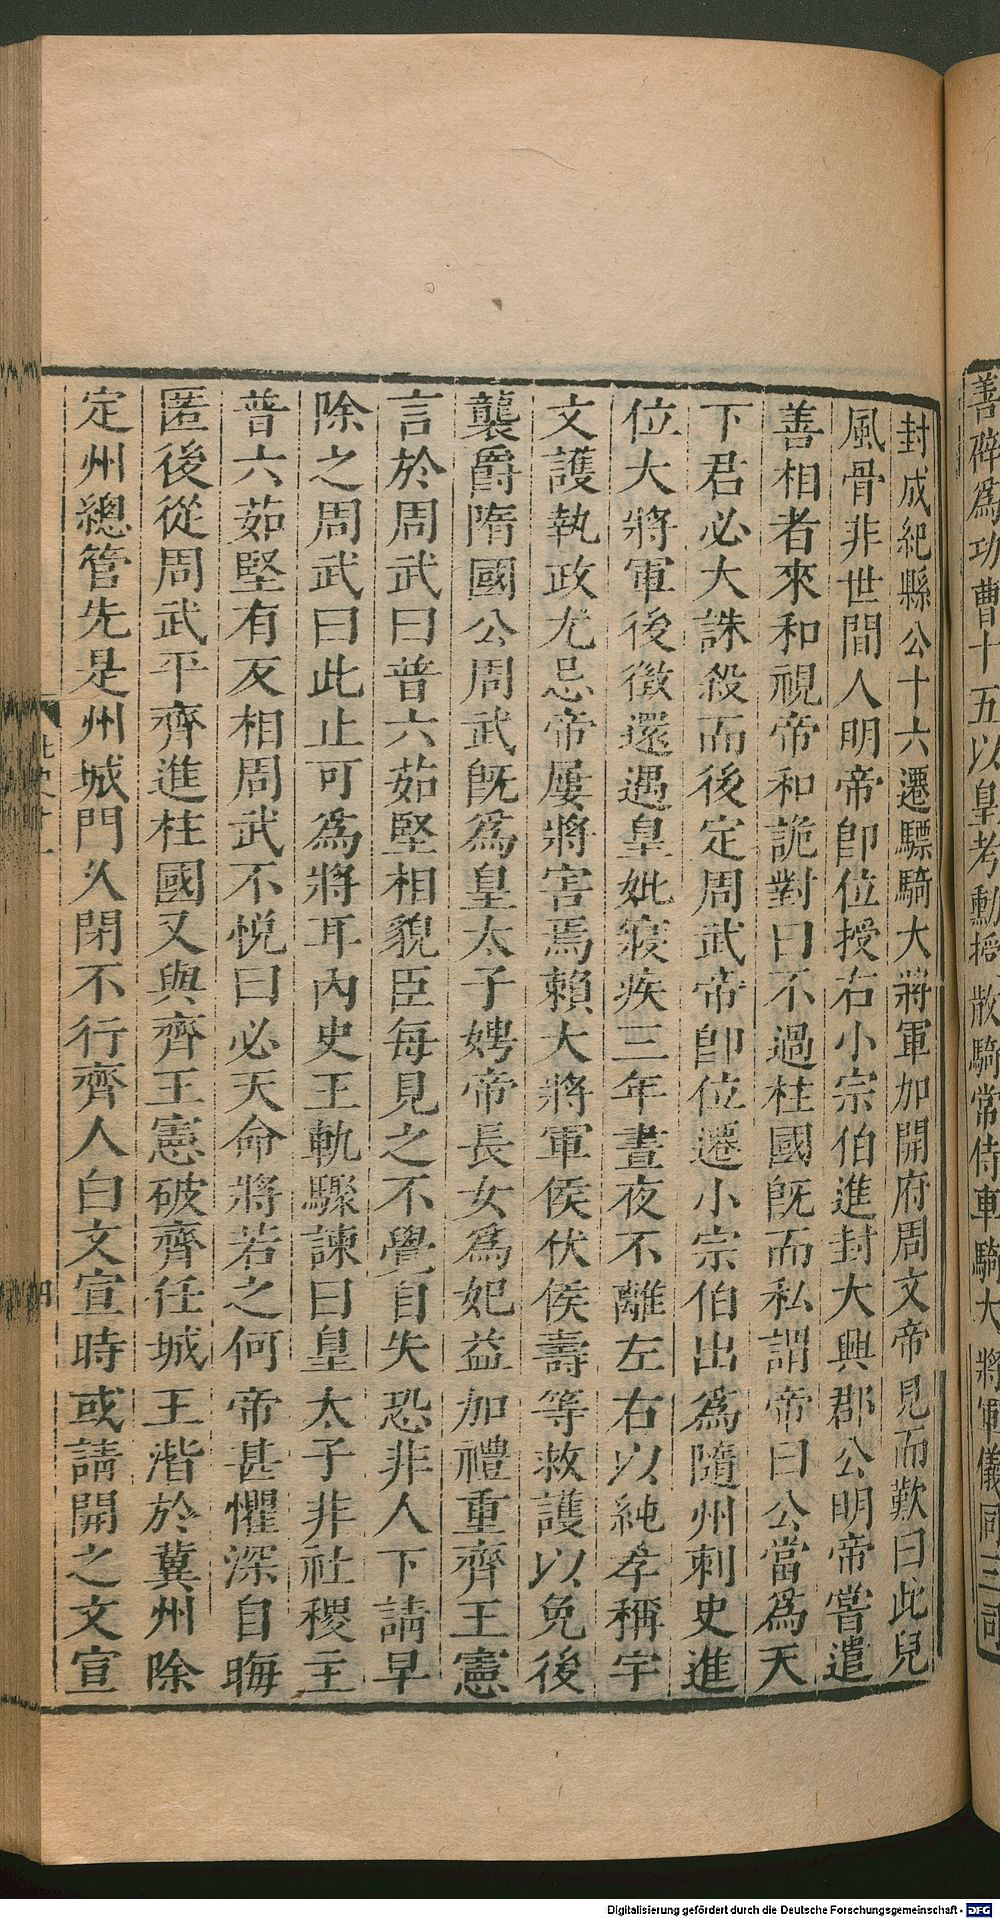 善辟爲功曹十五以皇考勳授散騎常侍車騎大將軍儀同三司
封成紀縣公十六遷驃騎大將軍加開府周文帝見而歎曰此兒
風骨非世間人明帝卽位授右小宗伯進封大興郡公明帝嘗遣
善相者來和視帝和詭對曰不過柱國旣而私謂帝曰公當爲天
下君必大誅殺而後定周武帝卽位遷小宗伯出爲隨州刺史進
位大將軍後徵還遇皇妣寢疾三年晝夜不離左右以純孝稱宇
文護執政尤忌帝屢將害焉賴大將軍侯伏侯壽等救護以免後
襲爵隋國公周武旣爲皇太子娉帝長女爲妃益加禮重齊王憲
言於周武曰普六茹堅相貌臣每見之不覺自失恐非人下請早
除之周武曰此止可爲將耳內史王軌驟諫曰皇太子非社稷主
普六茹堅有反相周武不悅曰必天命將若之何帝甚懼深自晦
匿後從周武平齊進柱國又與齊王憲破齊任城王湝於冀州除
定州總管先是州城門久閉不行齊人白文宣時或請開之文宣
四
Digitalisierung gefördert durch die Deutsche Forschungsgemeinschaft - DFG